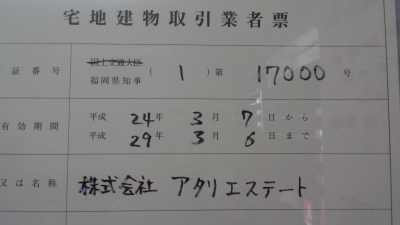 宅地建物取引業者票
証番号
国土交通大臣
福岡県知事 (1) 第 17000 号
有効期間
平成 24年 3月 7日から
平成 29年 3月 6日まで
又は名称 株式会社 アタリエステート